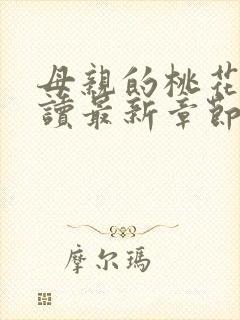 母親的桃花
讀最新章節
摩尔瑪